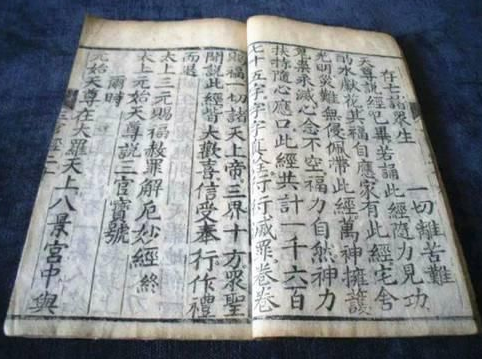 存亡諸衆生　一切離苦難
天尊說經已畢若誦此經隨力見功
酌水獻花其福自應家有此經宅舍
光明災難無侵佩帶此經萬神擁護
冤業永滅心念不空福力自然神力
扶持隨心應口此經共計一千六百
七十五字字字真法行行滅罪卷卷
賜福一切諸天上帝三界十方衆聖
聞說此經皆大歡喜信受奉行作禮
而退
太上三元賜福赦罪解厄妙經終
太上元始天尊說三官寶號
爾時
元始天尊在大羅天上八景宮中與